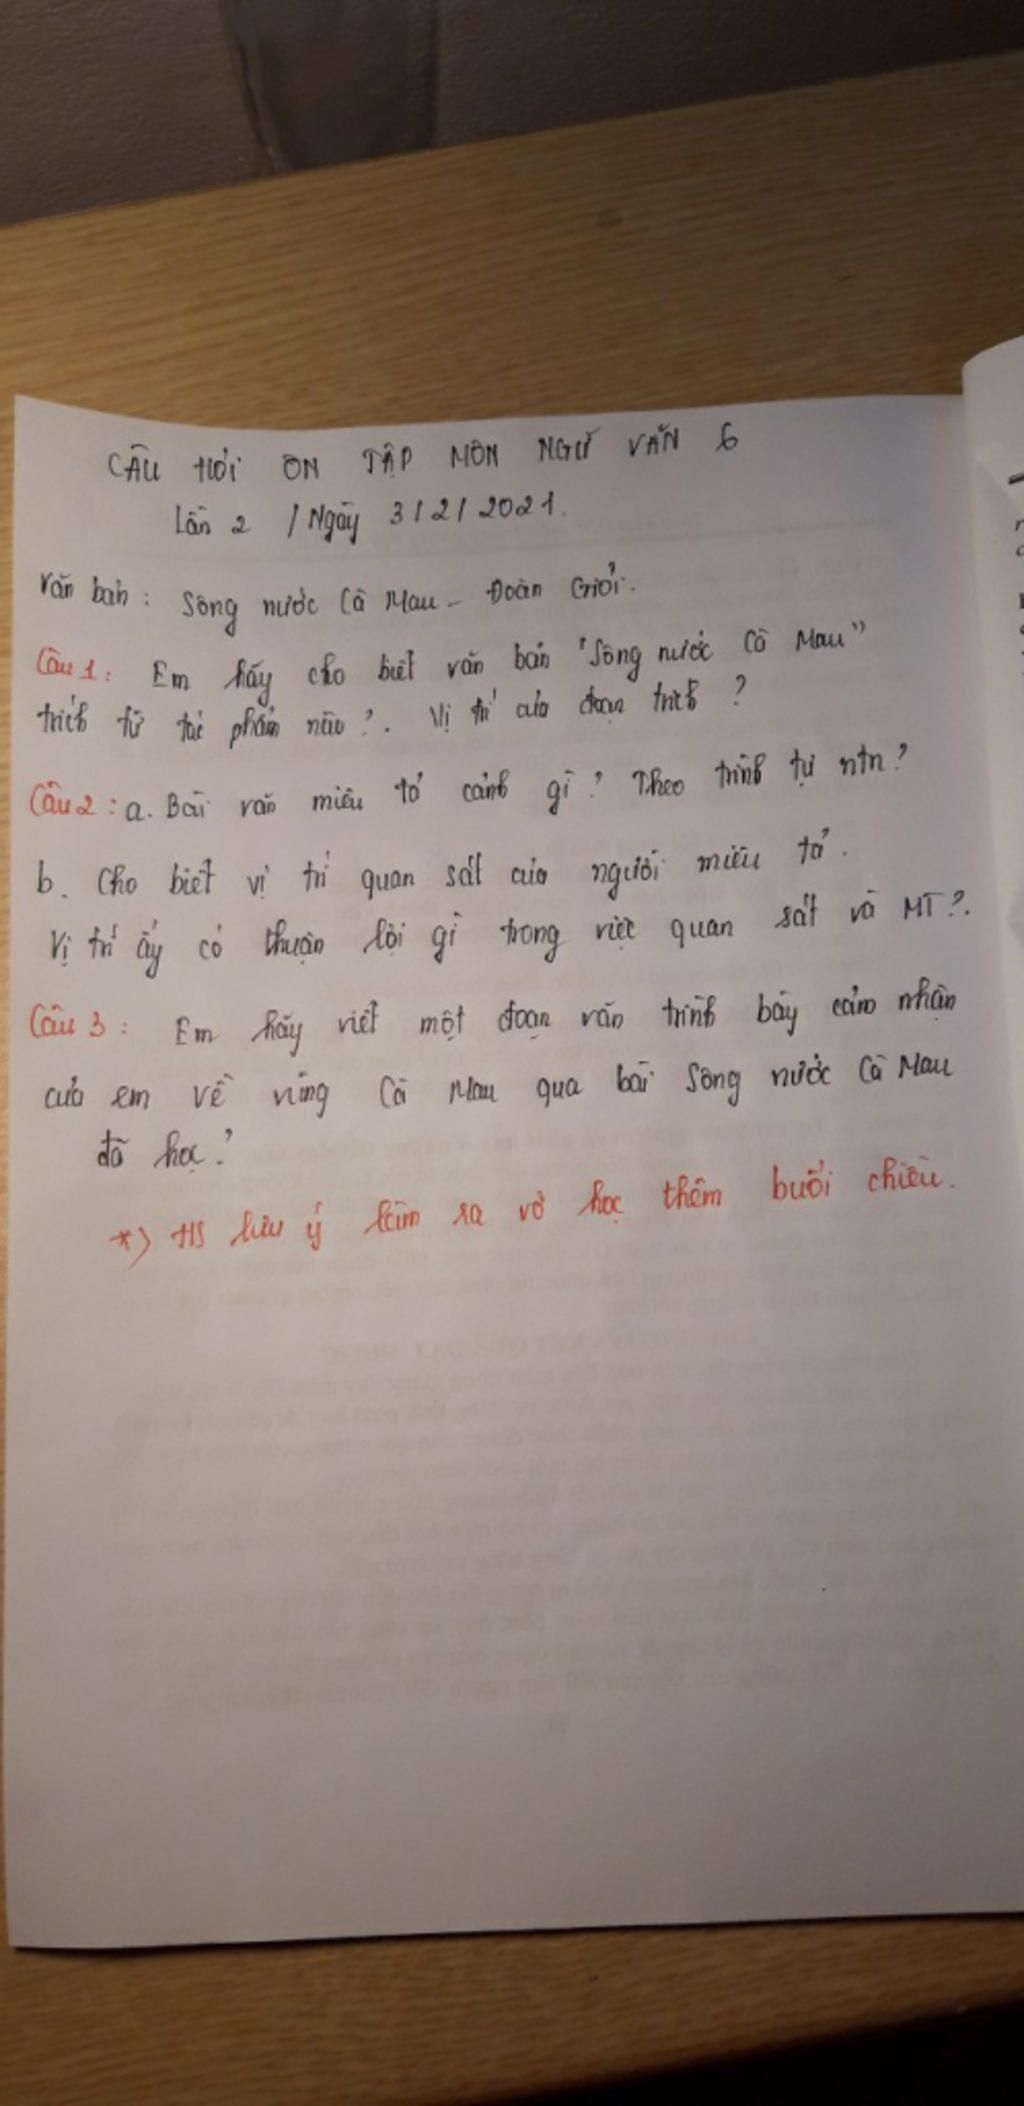 CÂU HỎI ÔN TẬP MÔN NGỮ VĂN 6
Lần 2 / Ngày 3/2/2021.
Văn bản: Sông nước Cà Mau - Đoàn Giỏi.
Câu 1: Em hãy cho biết văn bản "Sông nước Cà Mau"
trích từ tác phẩm nào?. Vị trí của đoạn trích?
Câu 2: a. Bài văn miêu tả cảnh gì? Theo trình tự ntn?
b. Cho biết vị trí quan sát của người miêu tả.
Vị trí ấy có thuận lợi gì trong việc quan sát và MT?.
Câu 3: Em hãy viết một đoạn văn trình bày cảm nhận
của em về vùng Cà Mau qua bài Sông nước Cà Mau
đã học?
*) HS lưu ý làm ra vở học thêm buổi chiều.